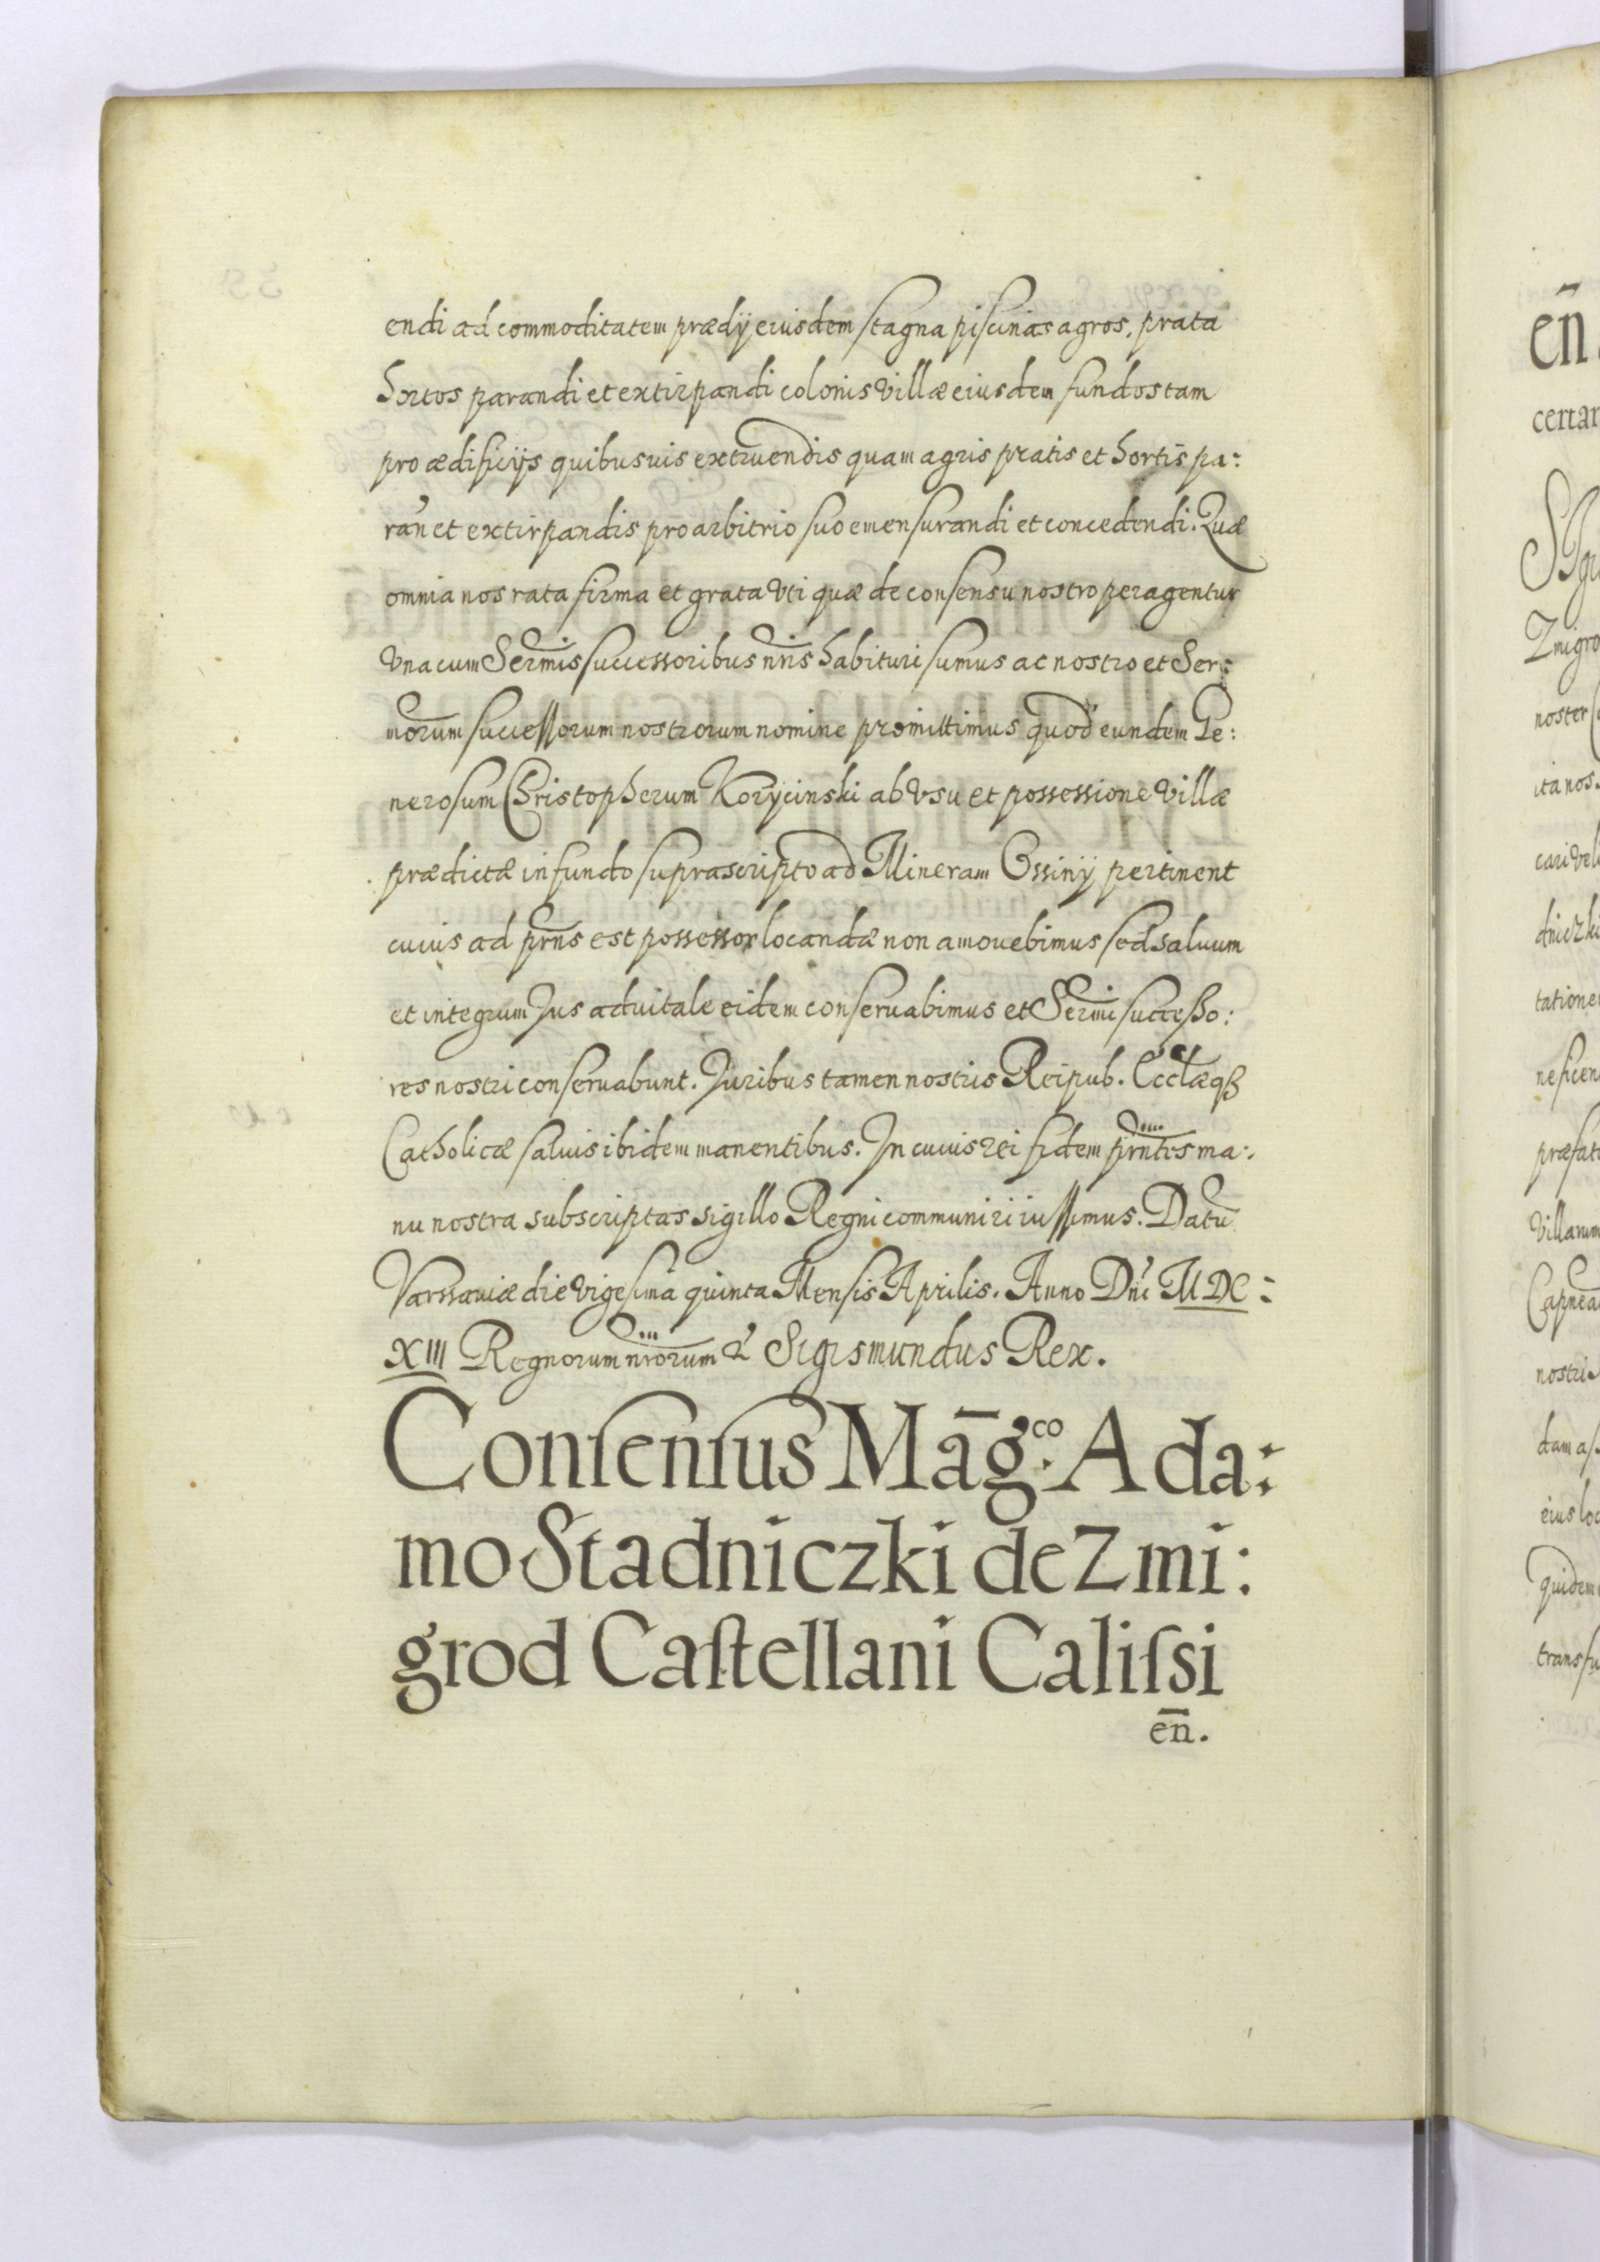 endi ad commoditatem prædij eiusdem stagna piscinas agros, prata
hortos parandi et extirpandi colonis villæ eiusdem fundos tam
pro ædificijs quibusuis extruendis quam agris pratis et hortis pa:
ran̄ et extirpandis pro arbitrio suo emensurandi et concedendi. Quæ
omnia nos rata firma et grata vti quæ de consensu nostro peragentur
vna cum Sermis successoribus nr̄is habituri sumus ac nostro et Ser:
morum successorum nostrorum nomine promittimus quod eundem Ge:
nerosum Christopherum Korycinski ab vsu et possessione villæ
prædictæ in fundo suprascripto ad Mineram Ossinÿ pertinent
cuius ad prn̄s est possessor locandæ non amouebimus sed saluum
et integrum Jus aduitale eidem conseruabimus et Sermi successo:
res nostri conseruabunt. Juribus tamen nostris Reipub. Ecclæqꝫ
Catholicæ saluis ibidem manentibus. In cuius rei fidem prn̄tes ma:
nu nostra subscriptas sigillo Regni communiri iussimus. Datū
Varssauiæ die vigesima quinta Mensis Aprilis. Anno Dn̄i M DC:
XIII Regnorum nr̄orum &c Sigismundus Rex.
Consensus Māg.co Ada:
mo Stadniczki de Zmi:
grod Castellani Calissi
en̄.
en̄
certar
Sigi
Zmigro
noster
ita nos
cari vel
dniczki
tatione
neficen
præfat
villarum
Capnea
nostri
dam as
eius loc
quidem
transfu